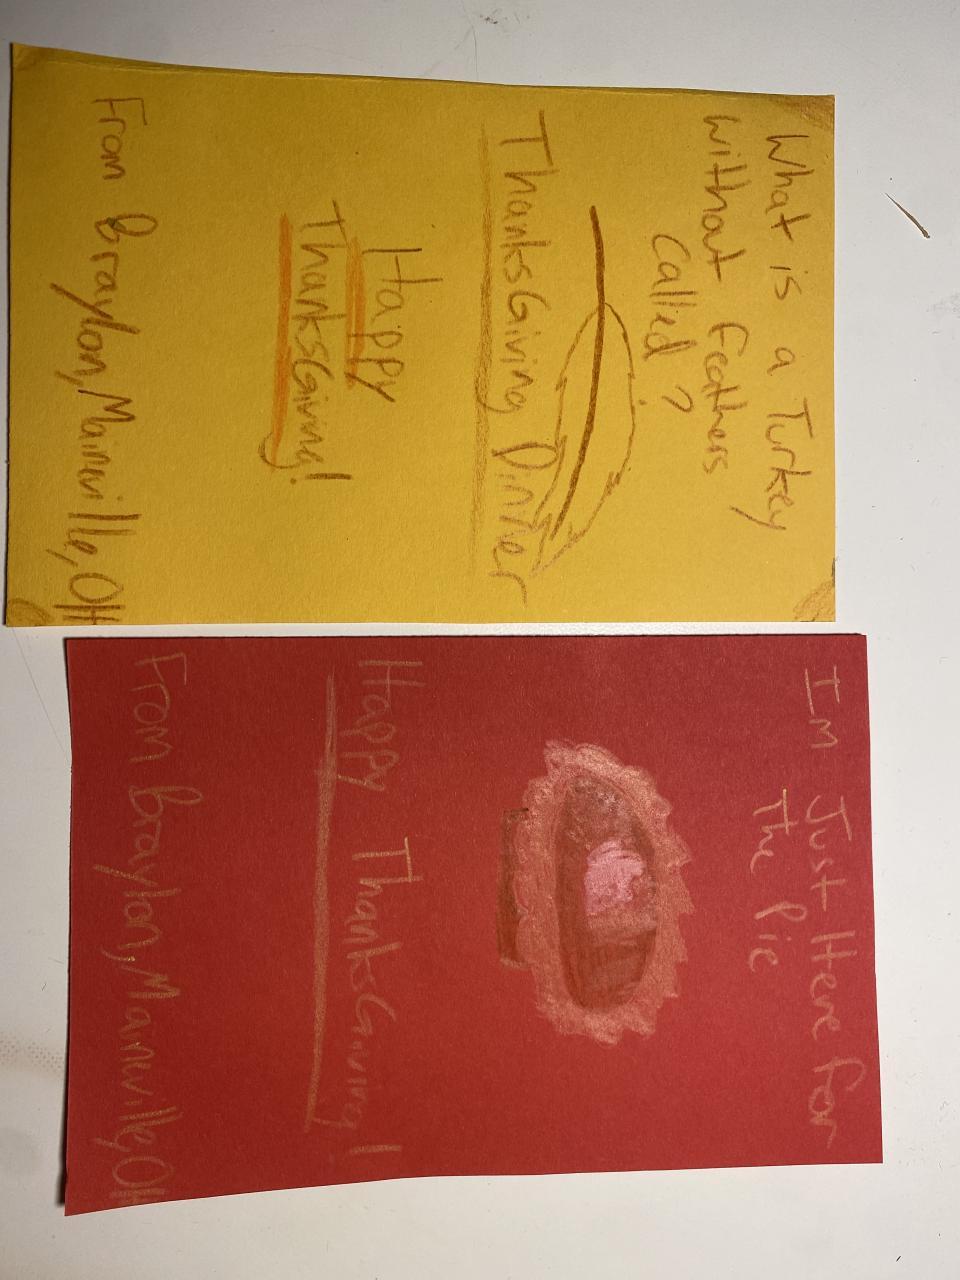 What is a Turkey
without Feathers
Called?
ThanksGiving Dinner
Happy
ThanksGiving!
From Braylon, Mainville, OH
Im Just Here For
The Pie
Happy ThanksGiving!
From Braylon, Manville, OH